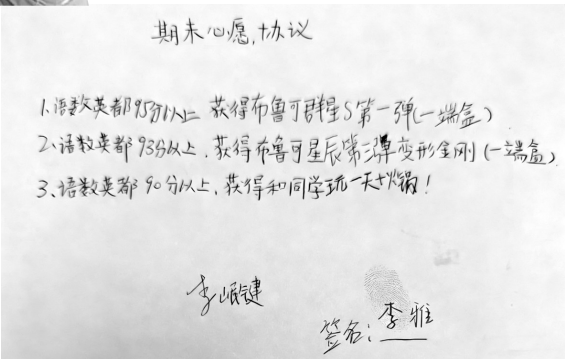 期末心愿,协议
1.语数英都95分以上 获得布鲁可群星S第一弹(一端盒)
2、语数英都93分以上,获得布鲁可星辰第三弹变形金刚(一端盒)
3、语数英都90分以上,获得和同学玩一天+火锅!
李岷键
签名:李雅